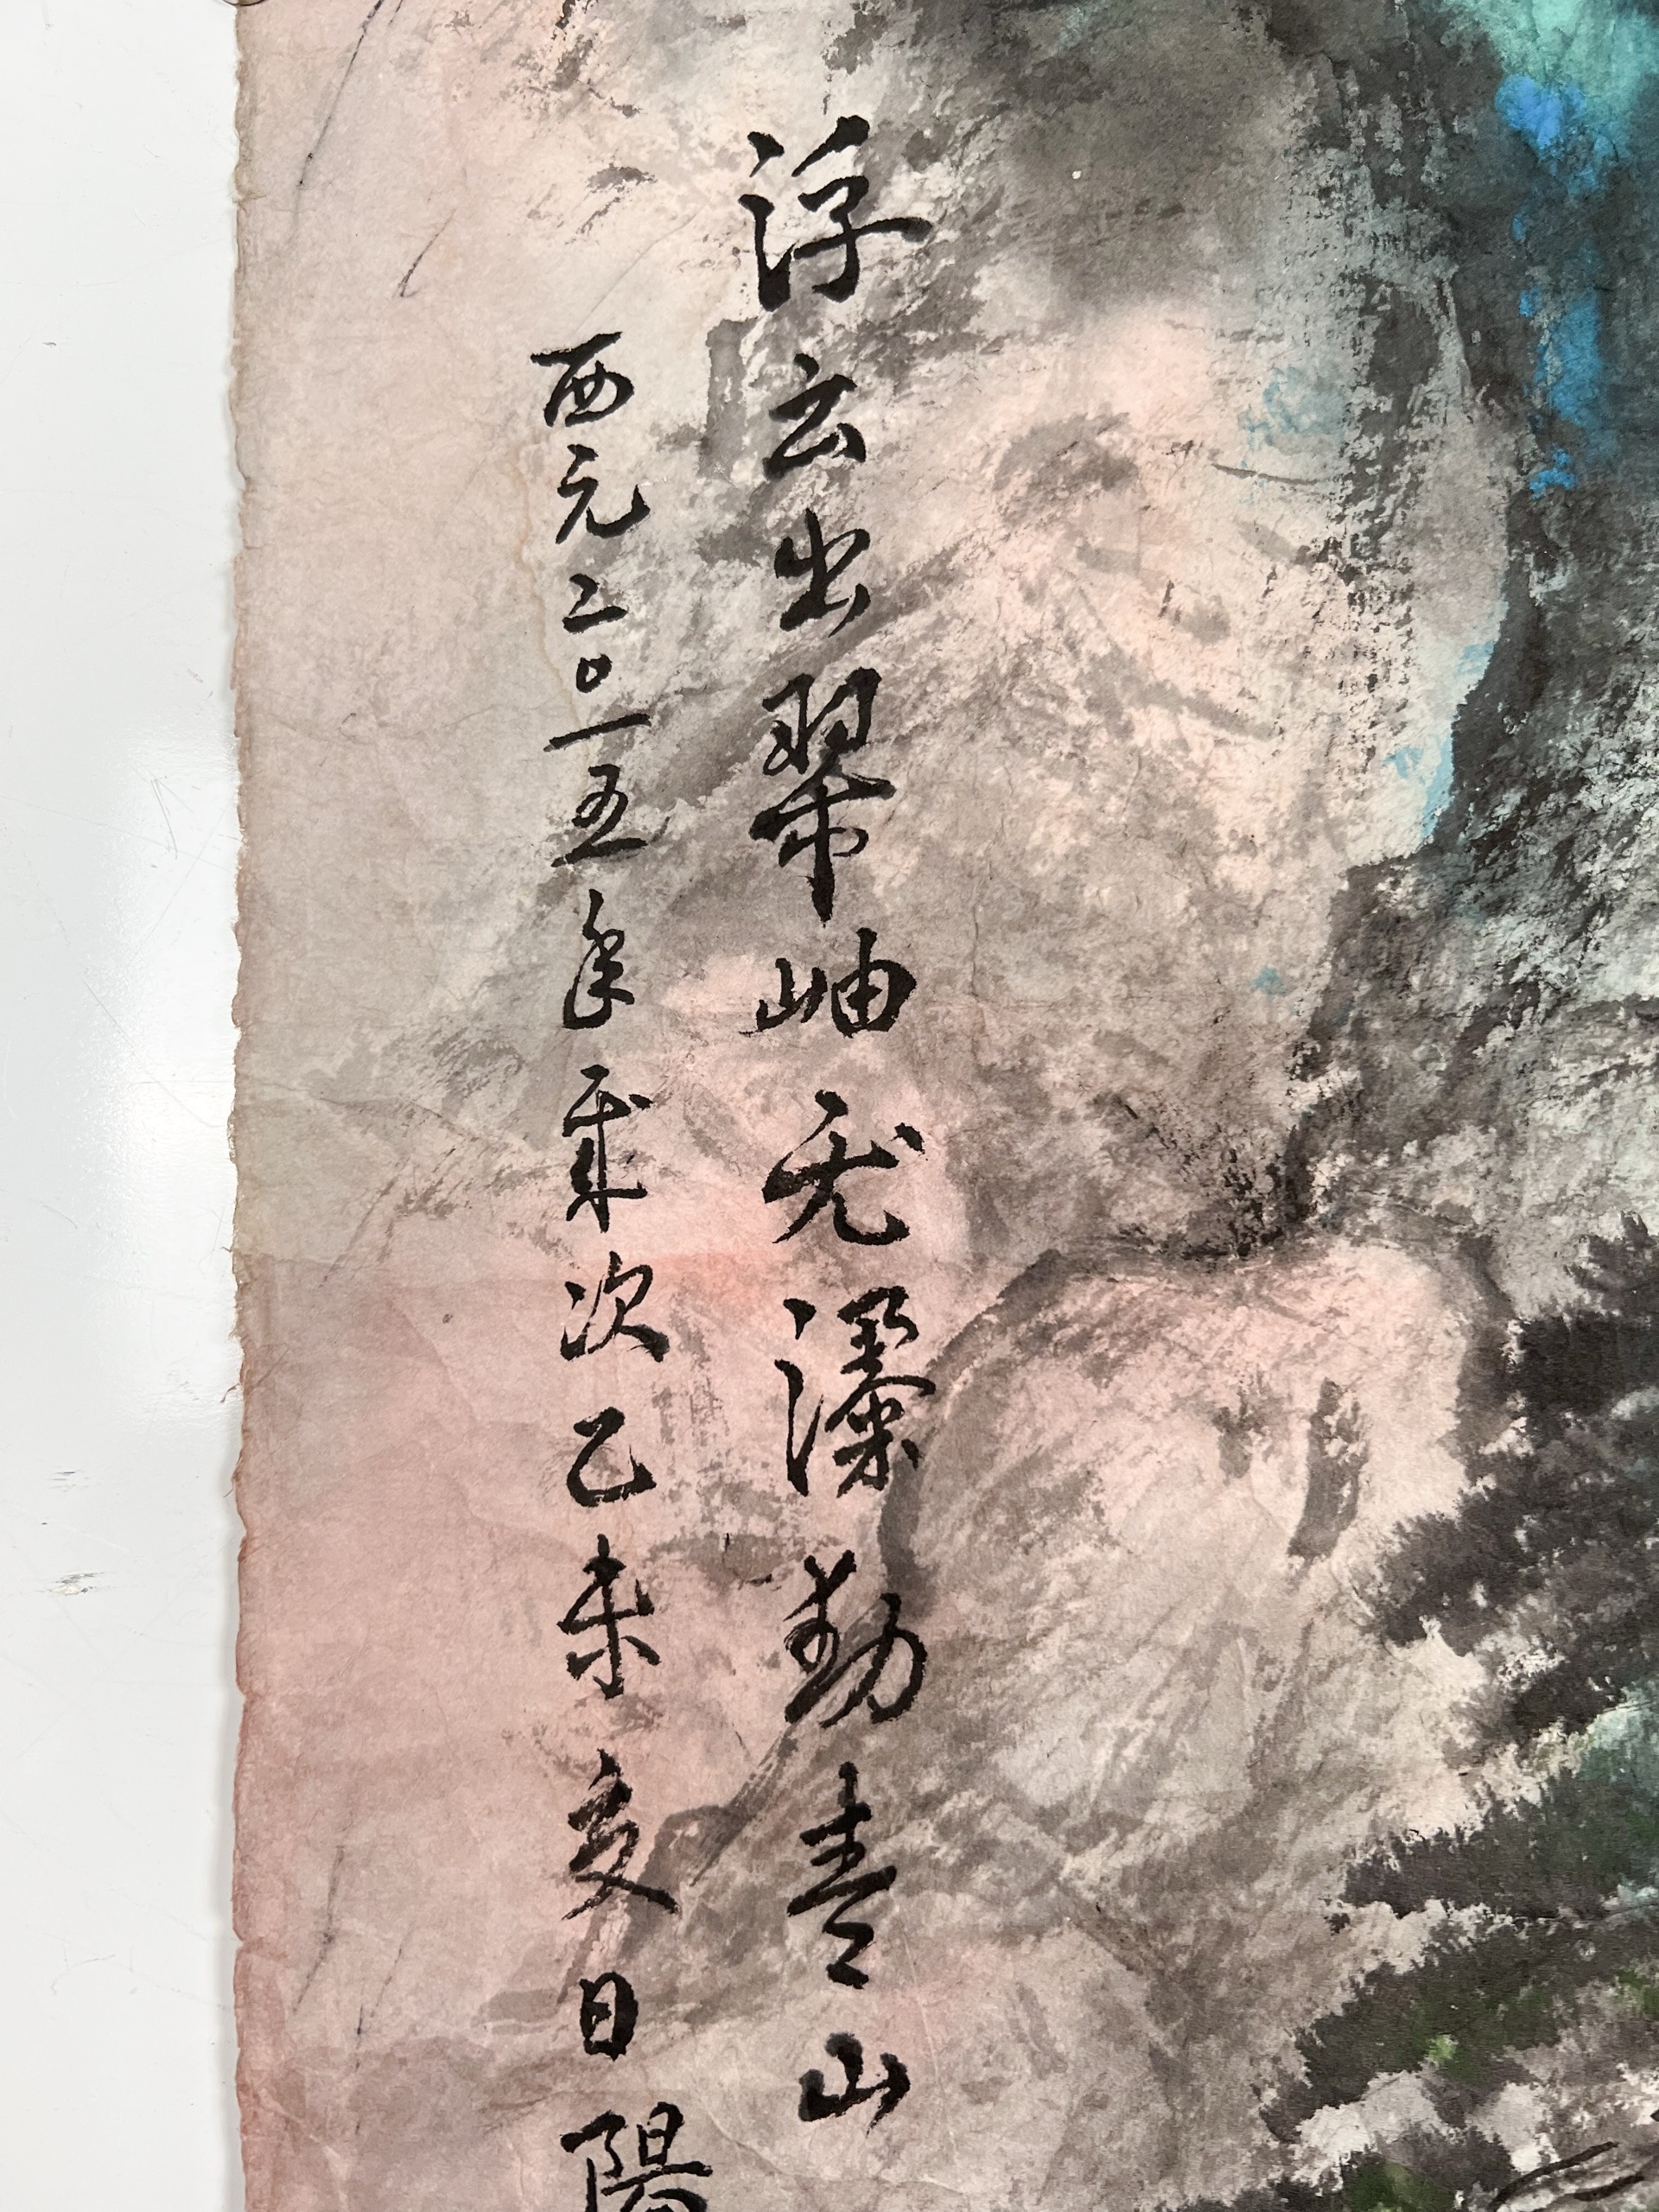 浮云出翠岫瀑動青山
西元二〇一五年歲次乙未夏日陽